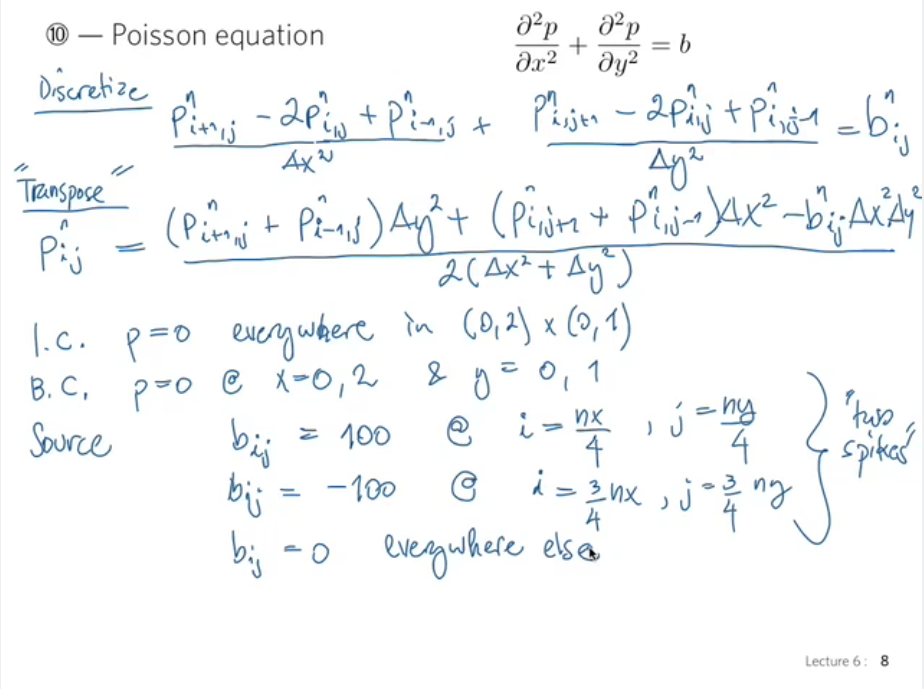 ⑩ — Poisson equation ∂²p/∂x² + ∂²p/∂y² = b
Discretize
(pⁿᵢ₊₁,ⱼ - 2pⁿᵢ,ⱼ + pⁿᵢ₋₁,ⱼ)/Δx² + (pⁿᵢ,ⱼ₊₁ - 2pⁿᵢ,ⱼ + pⁿᵢ,ⱼ₋₁)/Δy² = bⁿᵢⱼ
"Transpose"
pⁿᵢⱼ = ((pⁿᵢ₊₁,ⱼ + pⁿᵢ₋₁,ⱼ)Δy² + (pⁿᵢ,ⱼ₊₁ + pⁿᵢ,ⱼ₋₁)Δx² - bⁿᵢⱼ Δx²Δy²)/(2(Δx² + Δy²))
I.C. p=0 everywhere in (0,2) x (0,1)
B.C. p=0 @ x=0,2 & y=0,1
Source bᵢⱼ = 100 @ i = nx/4 , j = ny/4
bᵢⱼ = -100 @ i = 3/4 nx , j = 3/4 ny
"two spikes"
bᵢⱼ = 0 everywhere else
Lecture 6: 8